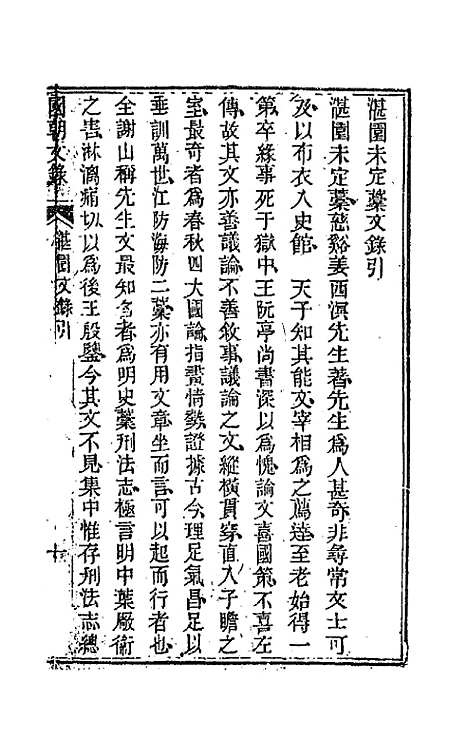 湛園未定藁文錄引
湛園未定藁慈谿姜西溟先生著先生爲人甚奇非尋常文士可
及以布衣入史館　天子知其能文宰相爲之薦達至老始得一
第卒緣事死于獄中王阮亭尚書深以爲愧論文喜國策不喜左
傳故其文亦善議論不善敘事議論之文縱橫貫穿直入子瞻之
室最奇者爲春秋四大國論指畫情勢證據古今理足氣昌足以
垂訓萬世江防海防二藁亦有用文章坐而言可以起而行者也
全謝山稱先生文最知名者爲明史藁刑法志極言明中葉厰衞
之害淋漓痛切以爲後王殷鑒今其文不見集中惟存刑法志總
國朝文錄　湛園文錄引　十